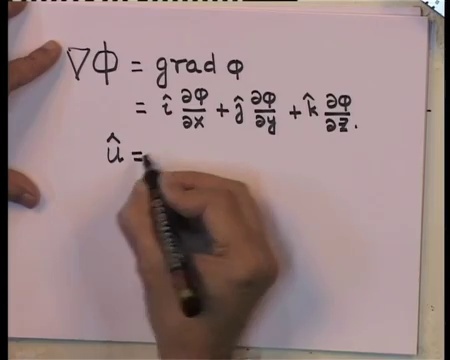 ∇Φ = grad φ
= î ∂φ/∂x + ĵ ∂φ/∂y + k̂ ∂φ/∂z.
û =